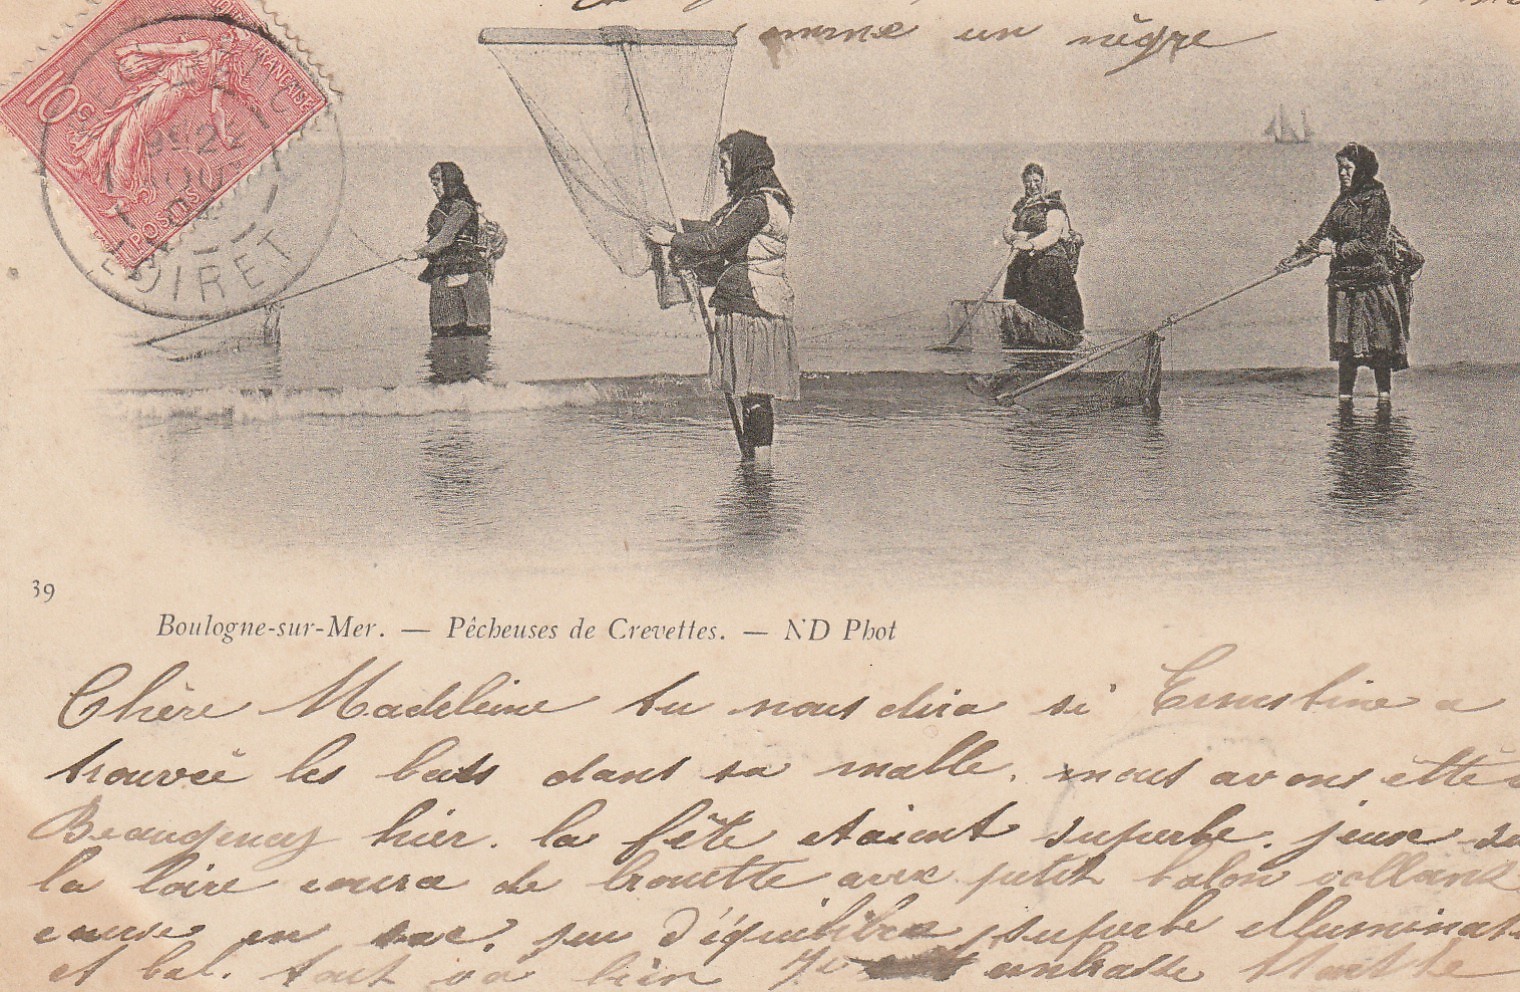 comme un nègre
10c
FRANÇAISE
POSTES
LOIRET
39
Boulogne-sur-Mer. — Pêcheuses de Crevettes. — ND Phot
Chère Madeleine tu nous dira si Ernestine a
trouvée les bas dans sa malle. nous avons étté
Beaugency hier. la fête etaient superbe. jeux
la loire course de brouette avec petit balon vollant
course en sac. jeu d'équilibre superbe elluminat
et bal. tout va bien Je embrasse